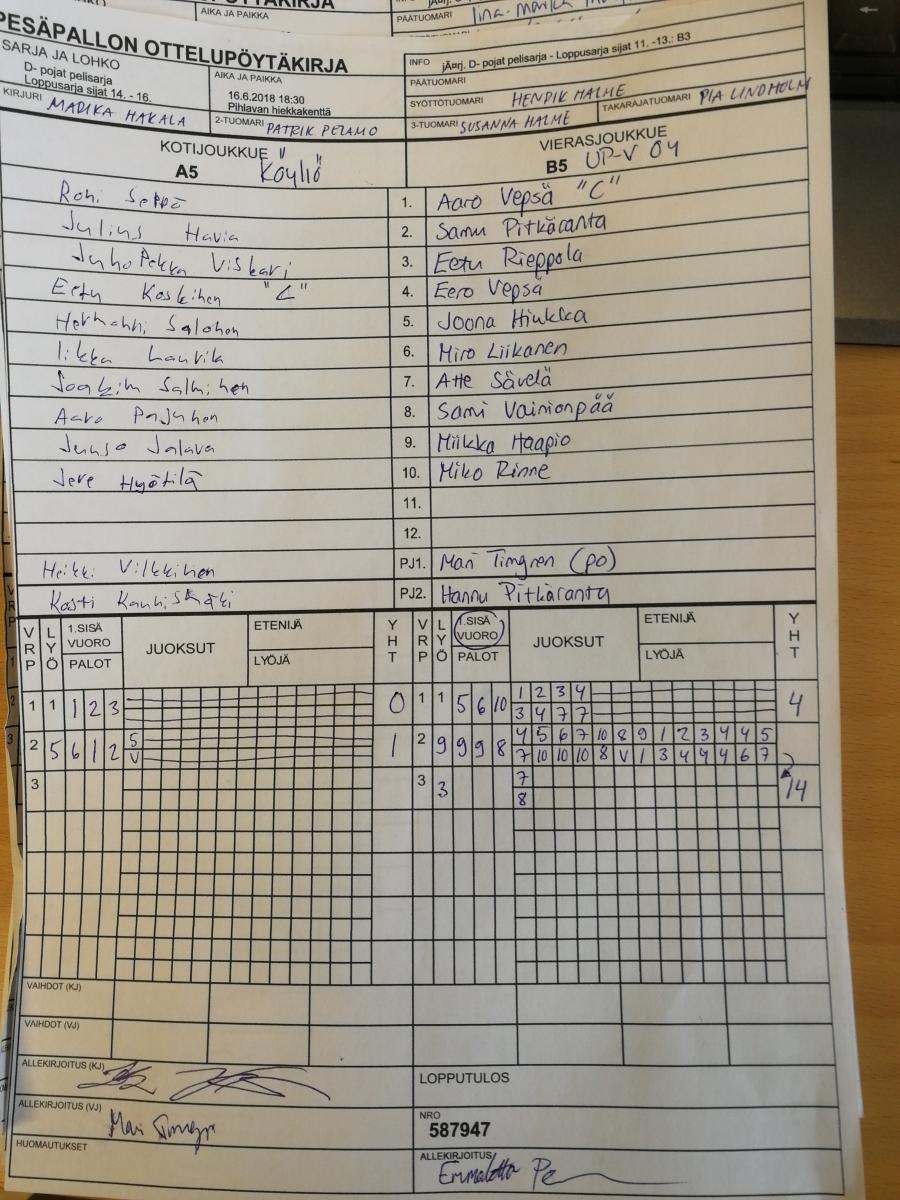 PÄÄTUOMARI
AIKA JA PAIKKA
PESÄPALLON OTTELUPÖYTÄKIRJA
SARJA JA LOHKO
D- pojat pelisarja
Loppusarja sijat 14. - 16.
AIKA JA PAIKKA
16.6.2018 18:30
Pihlavan hiekkakenttä
INFO jÃ¤rj. D- pojat pelisarja - Loppusarja sijat 11. -13.: B3
PÄÄTUOMARI
SYÖTTÖTUOMARI HENRIK HALME
TAKARAJATUOMARI PIA LINDHOLM
KIRJURI MARIKA HAKALA
2-TUOMARI PATRIK PELAMO
3-TUOMARI SUSANNA HALME
KOTIJOUKKUE
A5 Köyliö
VIERASJOUKKUE
B5 UP-V OY
Roni Seppä 1. Aaro Vepsä "C"
Julius Havia 2. Samu Pitkäranta
Juho Pekka Viskari 3. Eetu Rieppola
Eetu Koskinen "C" 4. Eero Vepsä
Hermanni Salonen 5. Joona Hiukka
Iikka Laurila 6. Miro Liikanen
Joakim Salminen 7. Atte Sävelä
Aaro Pajunen 8. Sami Vainionpää
Juuso Jalava 9. Miikka Haapio
Jere Hyötilä 10. Miko Rinne
11.
12.
Heikki Vilkkinen PJ1. Mari Timgren (po)
Kosti PJ2. Hannu Pitkäranta
VRP LYÖ 1.SISÄ VUORO PALOT JUOKSUT ETENIJÄ LYÖJÄ YHT VRP LYÖ 1.SISÄ VUORO PALOT JUOKSUT ETENIJÄ LYÖJÄ YHT
1 1 1 2 3 0 1 1 5 6 10 1 2 3 4 4
3 4 7 7
2 5 6 1 2 5 1 2 9 9 9 8 4 5 6 7 10 8 9 1 2 3 4 4 5
V 7 10 10 10 8 V 1 3 4 4 4 6 7
3 3 3 7 14
8
VAIHDOT (KJ)
VAIHDOT (VJ)
ALLEKIRJOITUS (KJ)
LOPPUTULOS
ALLEKIRJOITUS (VJ) Mari Timgren
NRO
587947
HUOMAUTUKSET
ALLEKIRJOITUS